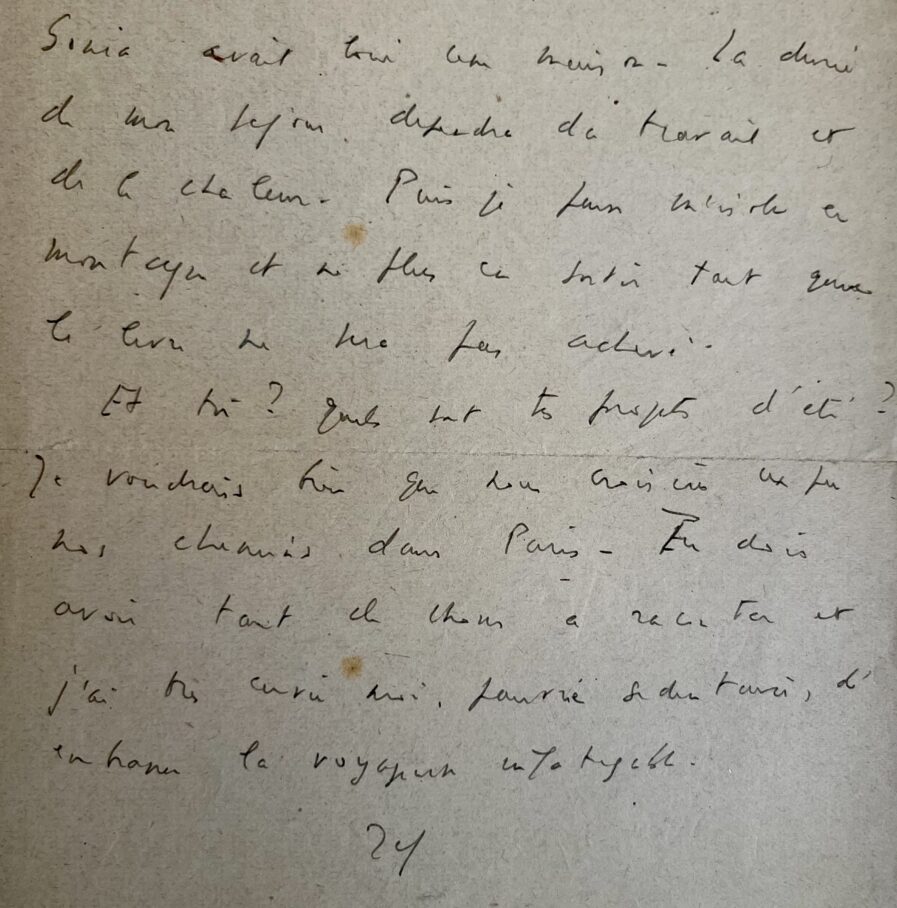 avait loué une maison. La durée
de mon séjour dépendra du travail et
de la chaleur. Puis je m'isole en
montagne et ne plus en sortir tant que
le livre ne sera pas achevé.
Et toi? quels sont tes projets d'été?
Je voudrais bien que nous croisions un peu
nos chemins dans Paris - Tu dois
avoir tant de choses à raconter et
j'ai très envie moi, pauvre sédentaire, d'
entraîner la voyageuse infatigable.